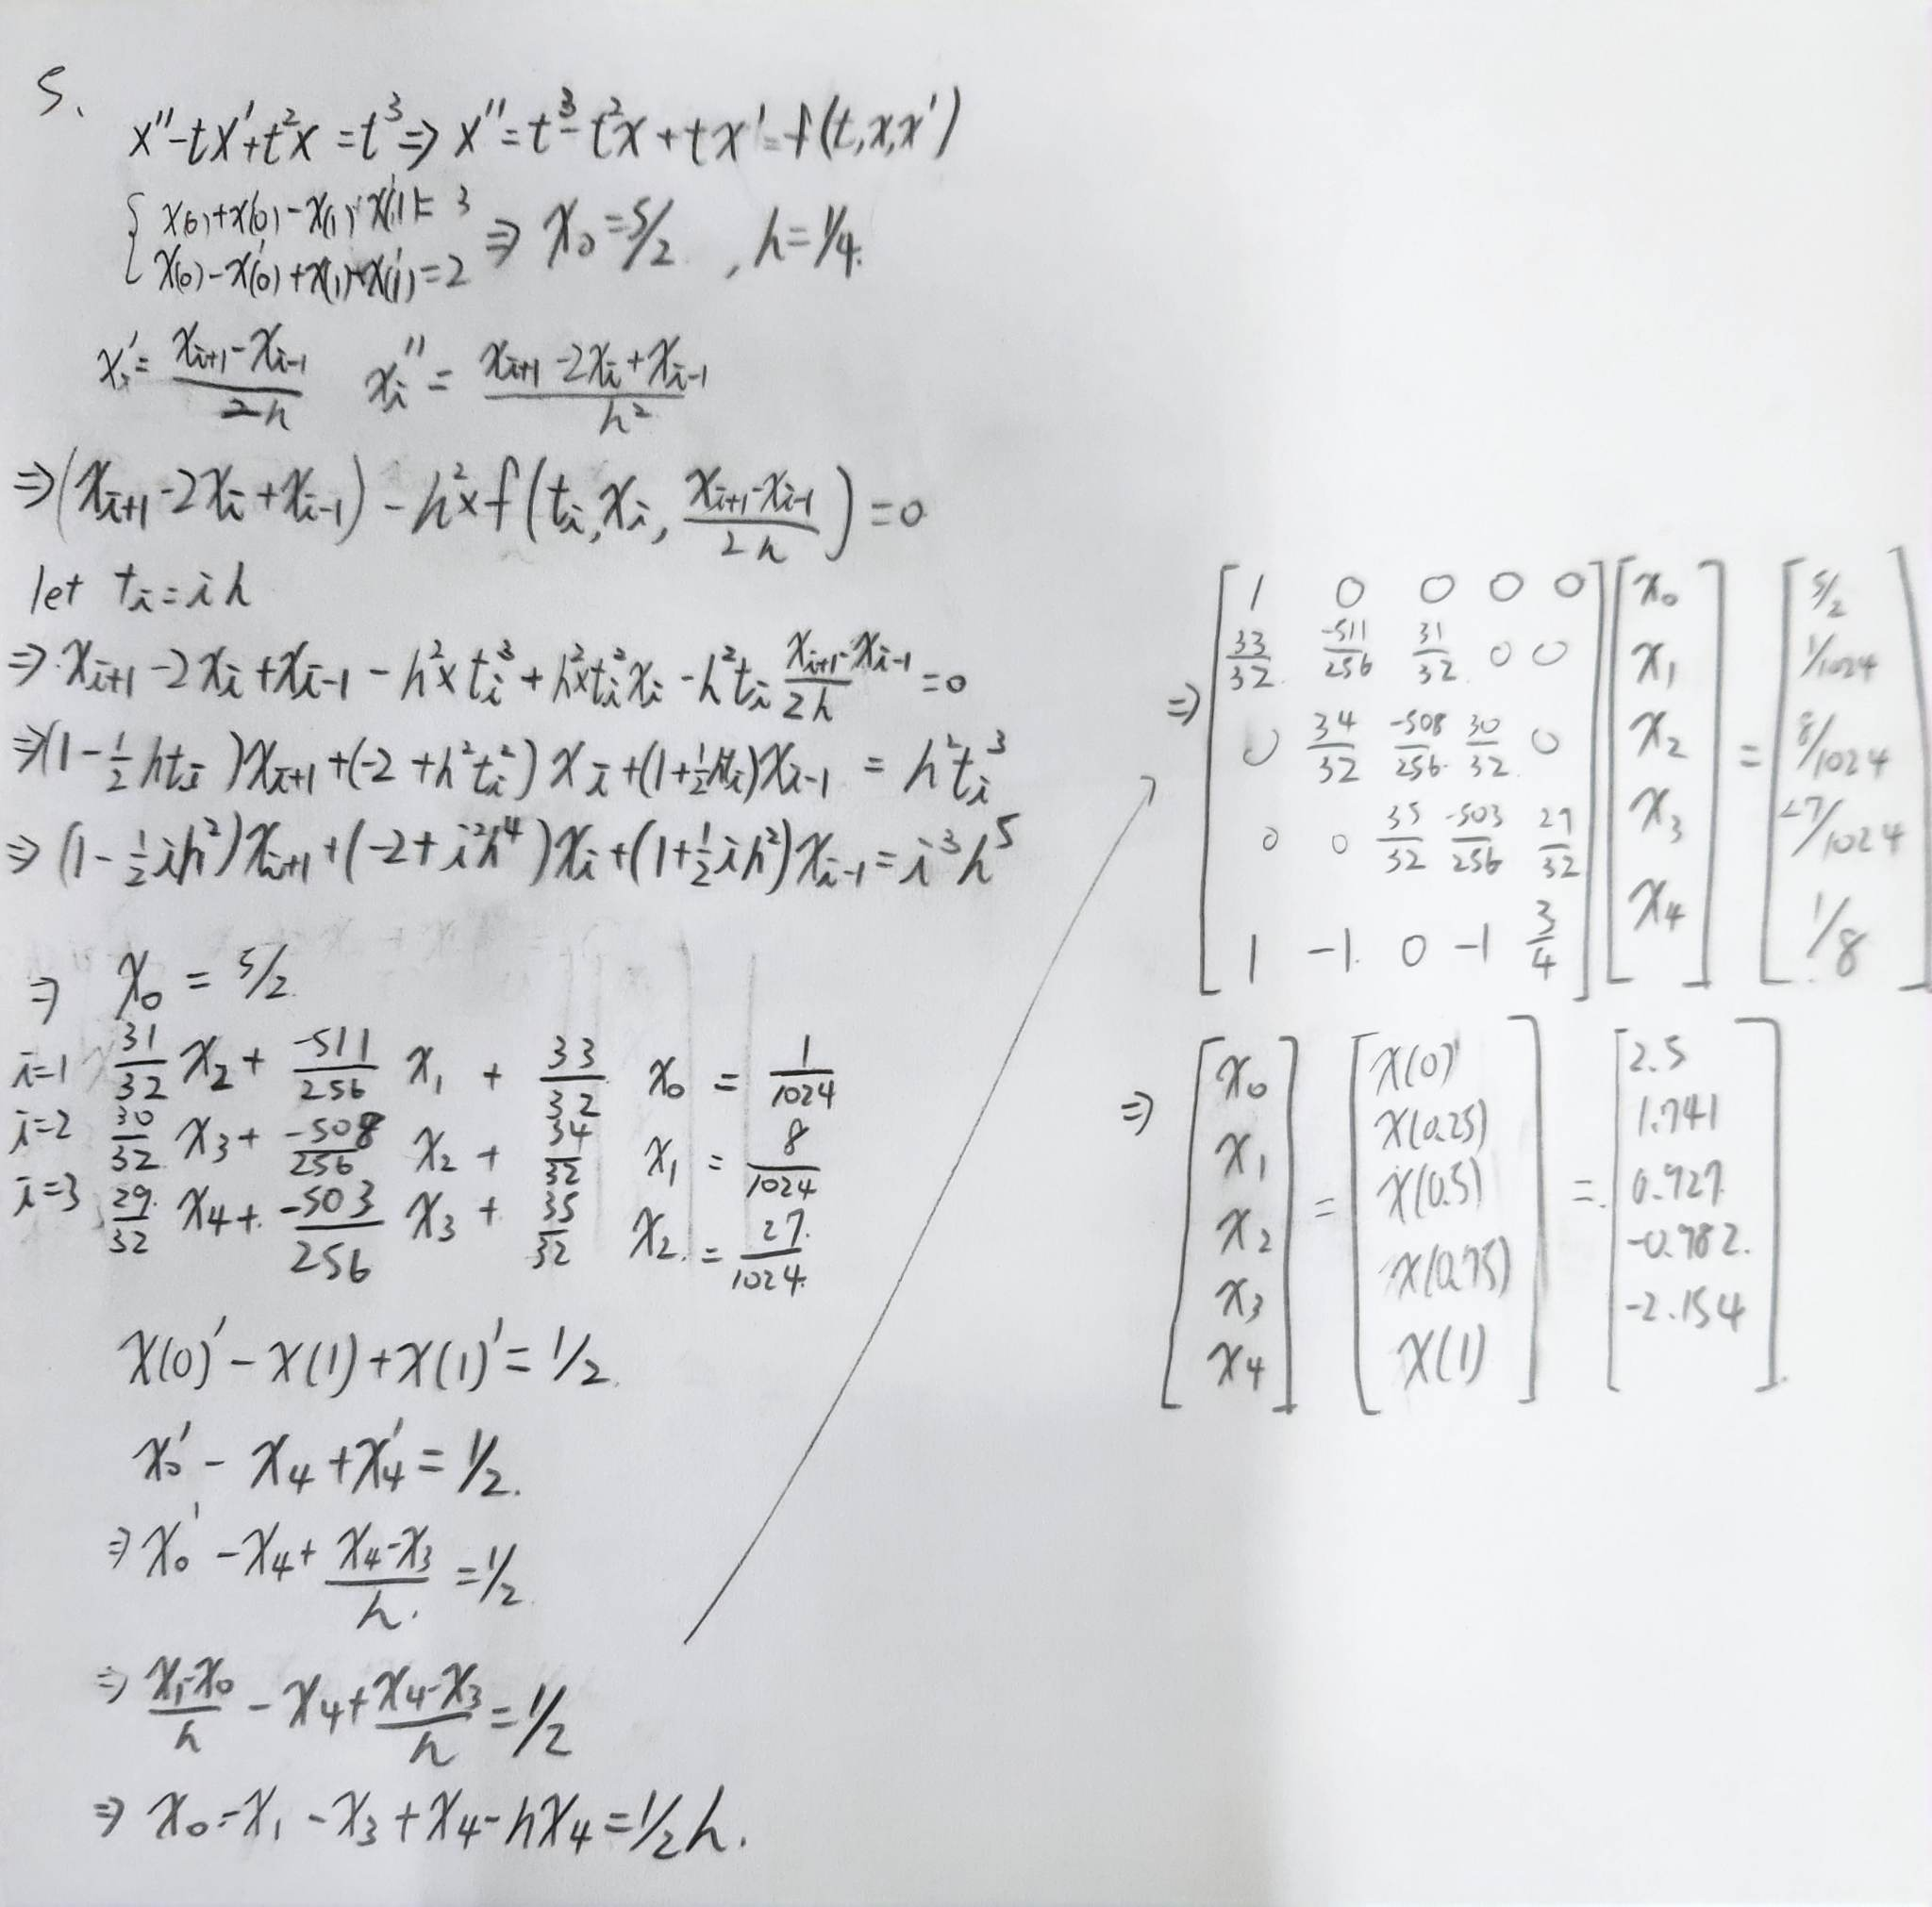 5.
x''-tx'+t²x = t³ ⇒ x'' = t³-t²x+tx' = f(t,x,x')
{ x(0)+x'(0)-x(1)+x'(1)=3
x(0)-x'(0)+x(1)-x'(1)=2 ⇒ x₀=5/2, h=1/4.
xᵢ' = (xᵢ₊₁-xᵢ₋₁)/2h xᵢ'' = (xᵢ₊₁-2xᵢ+xᵢ₋₁)/h²
⇒ (xᵢ₊₁-2xᵢ+xᵢ₋₁) - h²×f(tᵢ,xᵢ,(xᵢ₊₁-xᵢ₋₁)/2h) = 0
let tᵢ = ih
⇒ xᵢ₊₁-2xᵢ+xᵢ₋₁ - h²×tᵢ³ + h²×tᵢ²xᵢ - h²tᵢ (xᵢ₊₁-xᵢ₋₁)/2h = 0
⇒ (1-½htᵢ)xᵢ₊₁+(-2+h²tᵢ²)xᵢ+(1+½htᵢ)xᵢ₋₁ = h²tᵢ³
⇒ (1-½ih²)xᵢ₊₁+(-2+i²h⁴)xᵢ+(1+½ih²)xᵢ₋₁ = i³h⁵
⇒ x₀ = 5/2
i=1 31/32 x₂ + -511/256 x₁ + 33/32 x₀ = 1/1024
i=2 30/32 x₃ + -508/256 x₂ + 34/32 x₁ = 8/1024
i=3 29/32 x₄ + -503/256 x₃ + 35/32 x₂ = 27/1024
x(0)'-x(1)+x(1)' = 1/2
x₀'-x₄+x₄' = 1/2.
⇒ x₀'-x₄+(x₄-x₃)/h = 1/2
⇒ (x₁-x₀)/h - x₄ + (x₄-x₃)/h = 1/2
⇒ x₀-x₁-x₃+x₄-hx₄ = 1/2h.
⇒ [1 0 0 0 0] [x₀] [5/2]
[33/32 -511/256 31/32 0 0] [x₁] [1/1024]
[0 34/32 -508/256 30/32 0] [x₂] = [8/1024]
[0 0 35/32 -503/256 29/32] [x₃] [27/1024]
[1 -1 0 -1 3/4] [x₄] [1/8]
⇒ [x₀] [x(0)] [2.5]
[x₁] [x(0.25)] [1.741]
[x₂] = [x(0.5)] = [0.927]
[x₃] [x(0.75)] [-0.982]
[x₄] [x(1)] [-2.154]